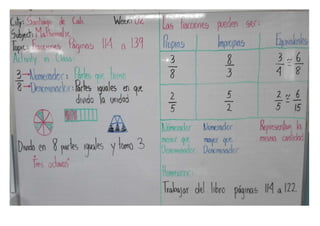 City: Santiago de Cali. Week: 02
Subject: Mathematic
Topic: Fracciones Páginas 114 a 139
Activity in Class:
3 → Numerador: Partes que tomo
8 → Denominador: Partes iguales en que
divido la unidad
Divido en 8 partes iguales y tomo 3
"Tres octavos"
Las fracciones pueden ser:
Propias Impropias Equivalentes
3/8 8/3 3/4 ≅ 6/8
2/5 5/2 2/5 ≅ 6/15
Númerador Númerador Representan la
menor que mayor que misma cantidad
Denominador Denominador
Homework:
Trabajar del libro páginas 114 a 122